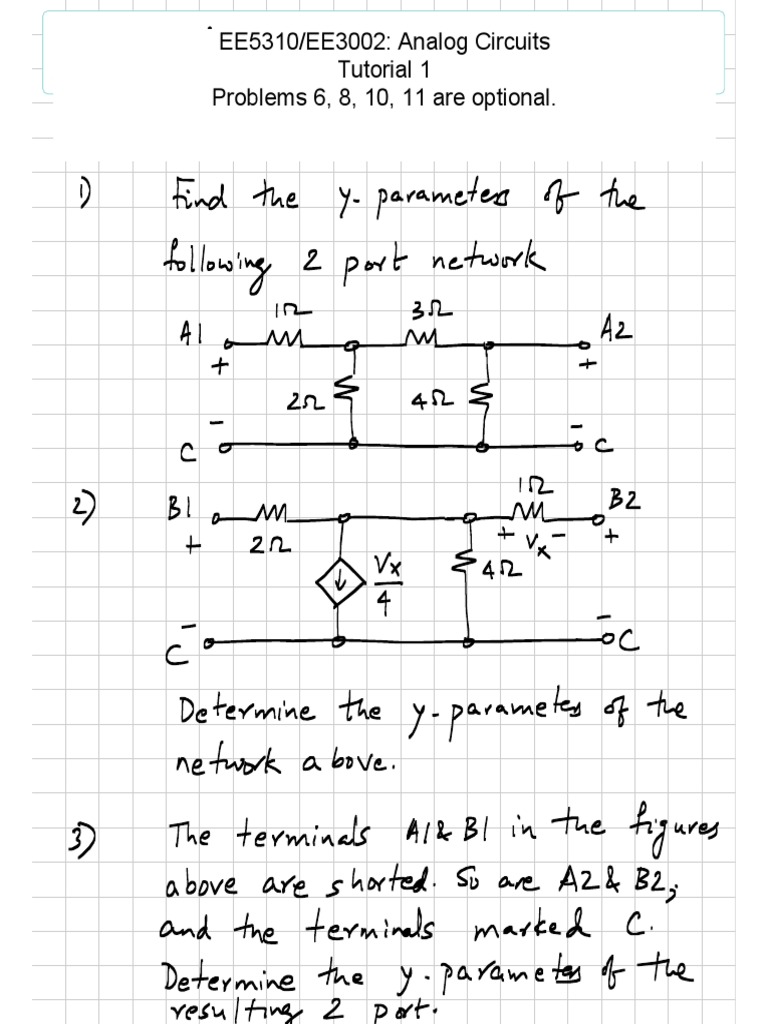 EE5310/EE3002: Analog Circuits
Tutorial 1
Problems 6, 8, 10, 11 are optional.
1) Find the y-parameters of the
following 2 port network
1Ω 3Ω
A1 A2
+ +
2Ω 4Ω
- -
C C
2) B1 1Ω B2
+ 2Ω + Vx - +
Vx/4 4Ω
- -
C C
Determine the y-parameters of the
network above.
3) The terminals A1 & B1 in the figures
above are shorted. So are A2 & B2;
and the terminals marked C.
Determine the y-parameters of the
resulting 2 port.